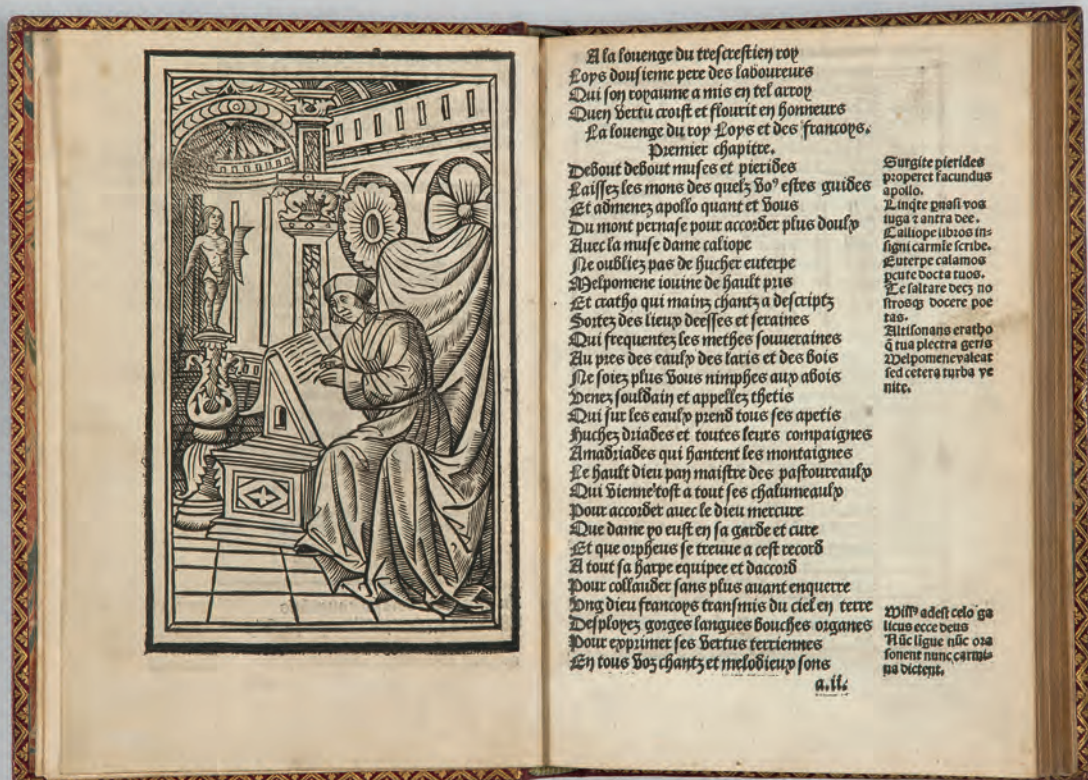 A la louenge du trescrestien roy
Loys dousieme pere des laboureurs
Qui son royaume a mis en tel arroy
Quen vertu croist et flourit en honneurs
La louenge du roy Loys et des francoys.
Premier chapitre.
Debout debout muses et pierides
Laissez les mons des quelz voꝰ estes guides
Et admenez apollo quant et vous
Du mont pernase pour accorder plus doulx
Avec la muse dame caliope
Ne oubliez pas de hucher euterpe
Melpomene iouine de hault pris
Et cratho qui mainz chantz a descriptz
Sortez des lieux deesses et seraines
Qui frequentez les methes souveraines
Au pres des eaulx des laris et des bois
Ne soiez plus vous nimphes aux abois
Venez souldain et appellez thetis
Qui sur les eaulx prend tous ses apetis
Huchez driades et toutes leurs compaignes
Amadriades qui hantent les montaignes
Le hault dieu pan maistre des pastoureaulx
Qui vienne tost a tout ses chalumeaulx
Pour accorder avec le dieu mercure
Que dame yo eust en sa garde et cure
Et que orpheus se treuve a cest record
A tout sa harpe equipee et daccord
Pour collauder sans plus avant enquerre
Ung dieu francoys transmis du ciel en terre
Desployez gorges langues bouches organes
Pour exprimer ses vertus terriennes
En tous voz chantz et melodieux sons
a.ii.
Surgite pierides
properet facundus
apollo.
Linqte pnasi vos
iuga ⁊ antra dee.
Calliope libros in-
signi carmie scribe.
Euterpe calamos
pcute docta tuos.
Te saltare decz no
strosqz docere poe
tas.
Altisonans eratho
q̃ tua plectra geris
Melpomene valeat
sed cetera turba ve
nite.
Missꝰ adest celo ga
licus ecce deus
Nũc ligue nũc ora
sonent nunc carmi-
na dictent.